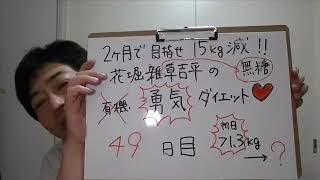 2ヶ月で目指せ15kg減!!
花堀雑草吉平の無糖
有機 勇気 ダイエット♥
49日目 前日71.3kg→?